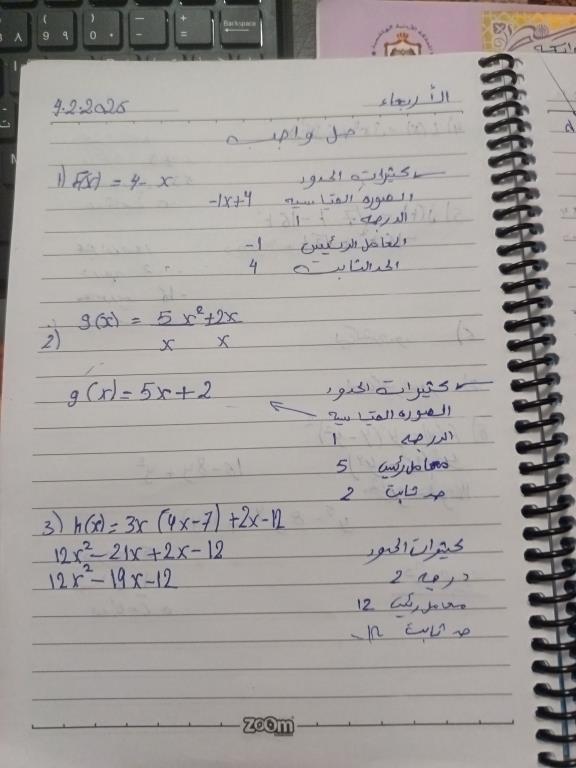 الأربعاء 9.2.2025
حل واجب
1) f(x) = 4 - x كثيرات الحدود
الصورة القياسية -1x+4
الدرجة 1
المعامل الرئيس -1
الحد الثابت 4
2) g(x) = 5x²+2x
x x
g(x) = 5x + 2 كثيرات الحدود
الصورة القياسية
الدرجة 1
معامل رئيس 5
حد ثابت 2
3) h(x) = 3x (4x-7) +2x-12
12x² - 21x + 2x - 12 كثيرات الحدود
12x² - 19x - 12 درجة 2
معامل رئيس 12
حد ثابت -12
zoom
Backspace